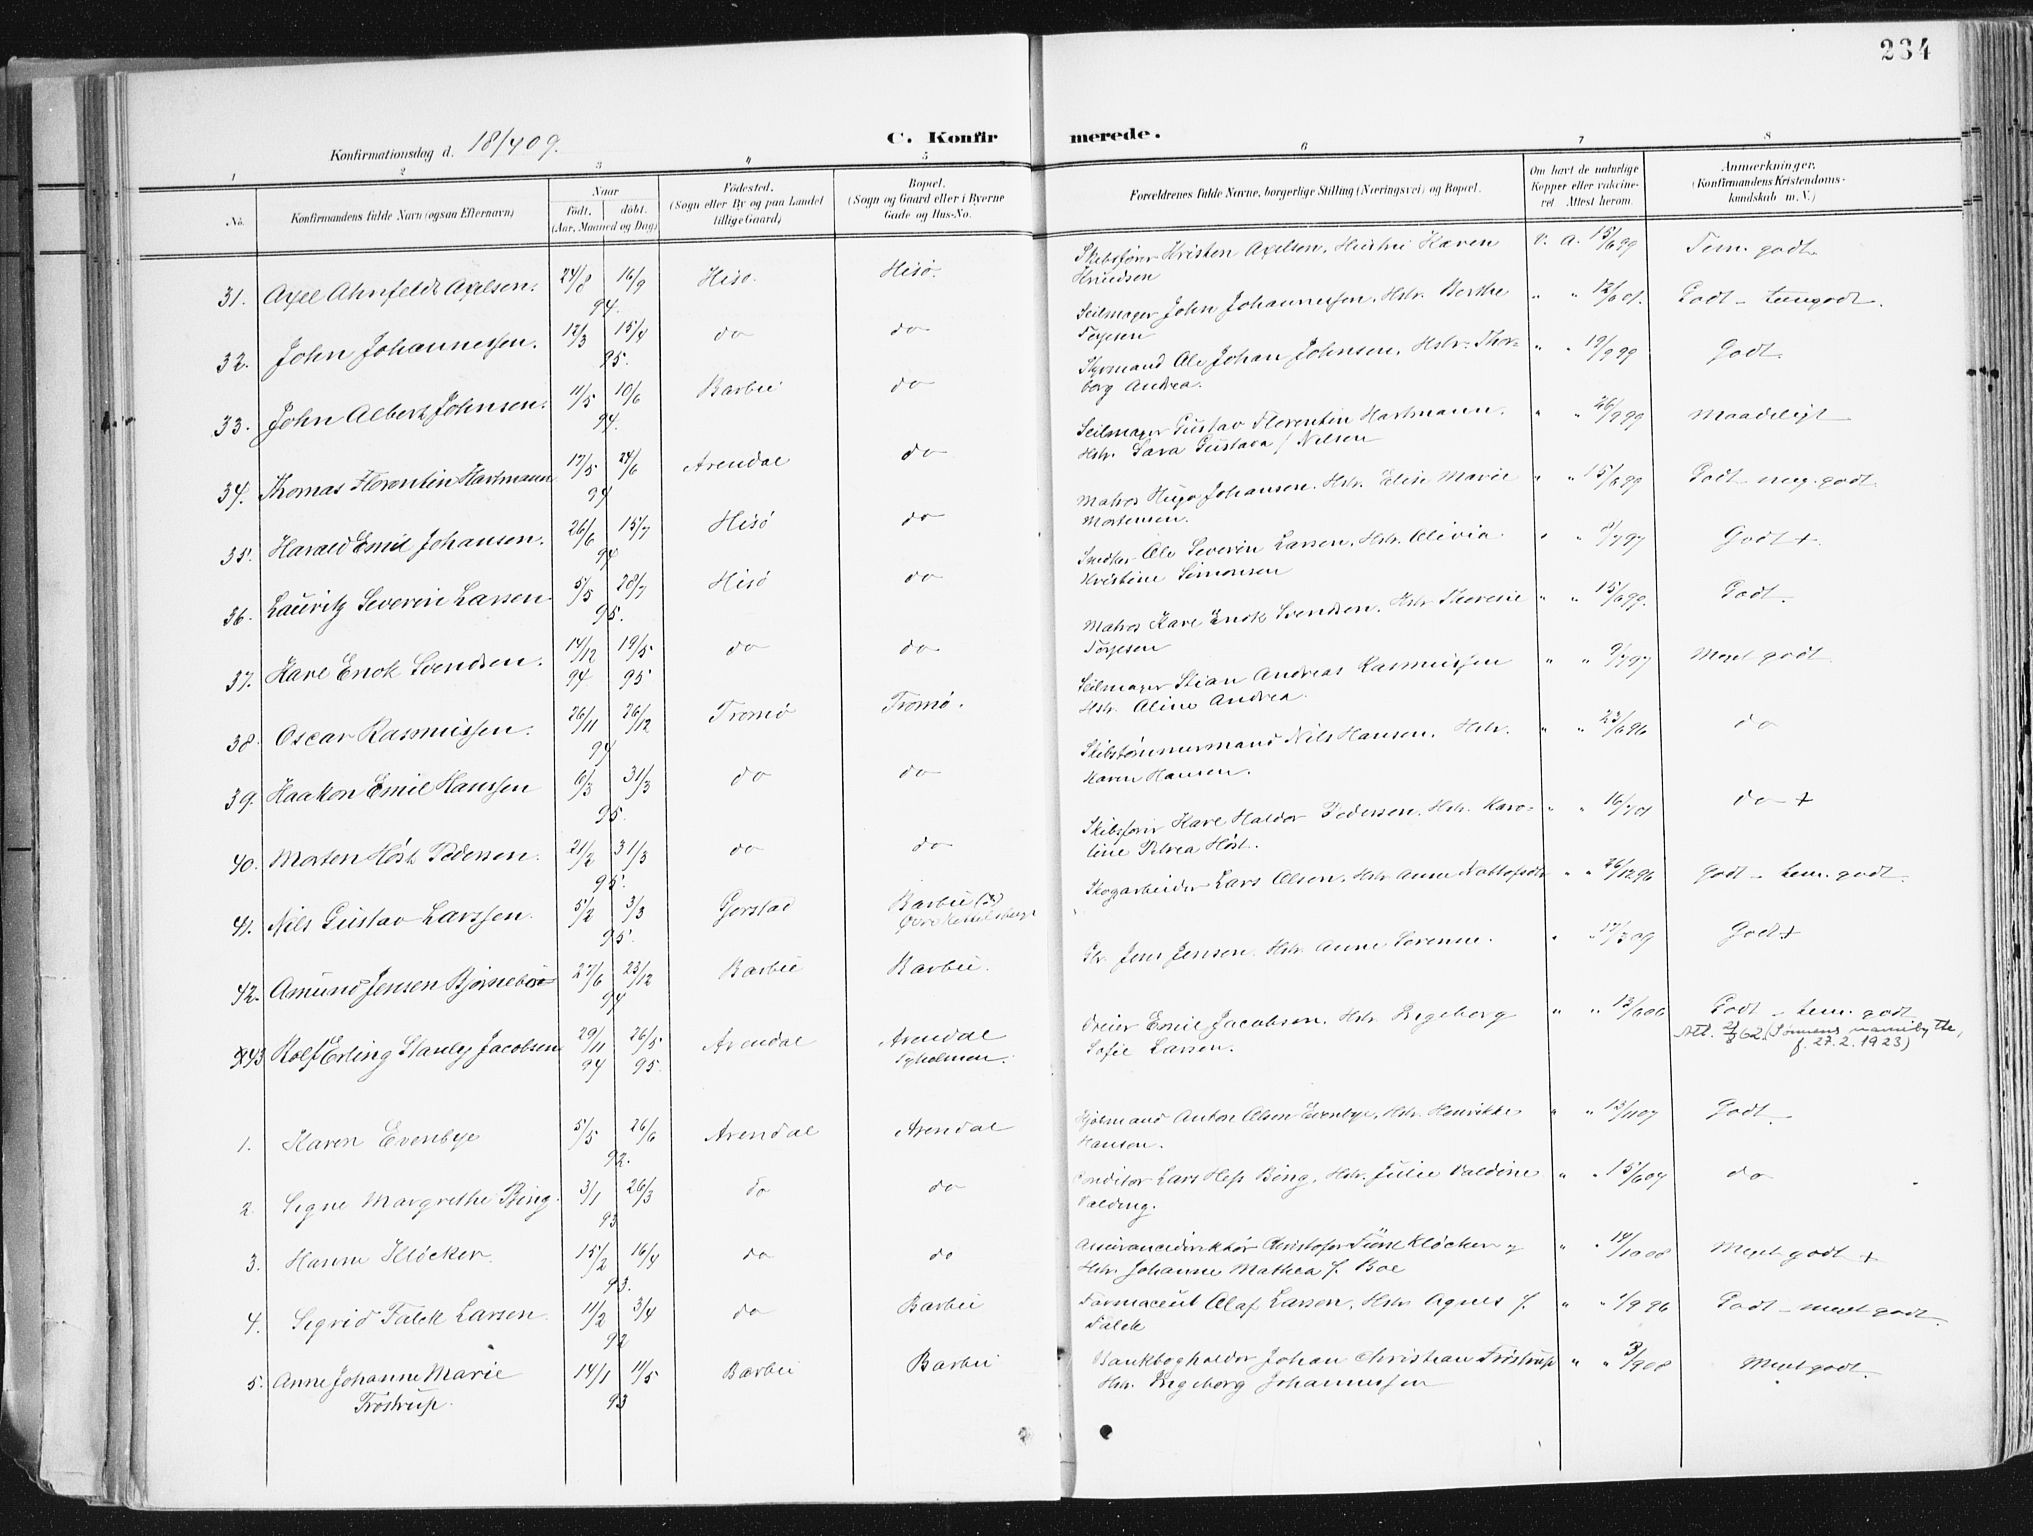 234
Konfirmationsdag d. 18/4 09.
C. Konfirmerede.
1 2 3 4 5 6 7 8
No. Konfirmandens fulde Navn (ogsaa Efternavn) Naar født, døbt. (Aar, Maaned og Dag) Fødested. (Sogn eller By og paa Landet tillige Gaard) Bopæl. (Sogn og Gaard eller i Byerne Gade og Hus-No. Forældrenes fulde Navne, borgerlige Stilling (Næringsvei) og Bopæl. Om havt de naturlige Kopper eller vakcineret Attest herom. Anmærkninger. (Konfirmandens Kristendomskundskab m. V.)
31. Axel Ahnfeldt Axelsen. 24/8 16/9 94. Hisø. Hisø. Skibsfører Kristen Axelsen, Hustru Karen Knudsen v. a. 15/6 99 Tem. godt.
32. John Johannessen. 12/3 15/4 95. do do Seilmager John Johannessen, Hstr. Berthe Terjesen " " 12/6 01. Godt - temgodt.
33. John Albert Johnsen. 11/5 10/6 94. Barbu do Styrmand Ole Johan Johnsen, Hstr. Thorborg Andrea. " " 19/9 99 Godt.
34. Thomas Florentin Hartmann 17/5 24/6 94 Arendal do Seilmager Gustav Florentin Hartmann. Hstr. Sara Gustava f Nilsen " " 26/9 99 Maadeligt
35. Harald Emil Johansen. 26/6 15/7 94 Hisø do Matros Hugo Johansen, Hstr. Elise Marie Mortensen. " " 15/6 99 Godt - meg. godt.
36. Lauritz Severin Larsen 5/5 28/7 95. Hisø do Snedker Ole Severin Larsen, Hstr. Olivia Kristine Simonsen " " 9/7 97 Godt +.
37. Karl Enok Svendsen. 14/12 94 19/5 95 do do Matros Karl Enok Svendsen, Hstr. Therese Terjesen " " 15/6 99. Godt.
38. Oscar Rasmussen. 26/11 26/12 94 Tromø Tromø. Seilmager Stian Andreas Rasmussen Hstr. Aline Andrea. " " 9/7 97 Meget godt
39. Haakon Emil Hanssen 6/3 31/3 95. do do Skibstømmermand Nils Hansen, Hstr. Karen Hansen. " " 23/6 96 do
40. Morten Høst Pedersen. 21/2 31/3 95. do do Skibsfører Karl Haldor Pedersen, Hstr. Karoline Petrea Høst. " " 16/7 01 do +
41. Nils Gustav Larssen. 5/2 3/3 95. Gjerstad Barbu Skogarbeider Lars Olsen, Hstr. Anne " " 26/12 96 Godt - tem. godt.
42. Amund Jensen Bjørnebo 27/6 23/12 94 Barbu Barbu. Gbr. Jens Jensen, Hstr. Anne Severine. " " 17/3 09 Godt +
43 Rolf Erling Stanley Jacobsen 29/11 94 26/5 95. Arendal Arendal Tyholmen. Dreier Emil Jacobsen, Hstr. Ingeborg Sofie Larsen. " " 13/6 06 Godt - tem. godt
Att. 2/3 62. (Sønnens navnebytte, f. 27.2.1923)
1. Karen Evenbye 5/5 26/6 92. Arendal Arendal Hjulmand Anton Olsen Evenbye, Hstr. Henrikke Hansen. " " 13/11 07 Godt.
2. Signe Margrethe Bing. 3/1 26/3 93 do do Conditor Lars Hess Bing, Hstr. Julie Valdine Valding. " " 15/6 04 do
3. Hanne Kløcker. 15/2 16/4 93. do do Assurancedirektør Christofer Fürst Kløcker og Hstr. Johanne Mathea f. Boe " " 14/10 08 Meget godt +
4. Sigrid Falck Larsen. 11/2 3/4 92 do Barbu Farmaceut Olaf Larsen, Hstr. Agnes f. Falck " " 1/9 96 Godt - meget godt.
5. Anne Johanne Marie Trøstrup. 14/1 11/5 93 Barbu Barbu Bankbogholder Johan Christian Trøstrup Hstr. Ingeborg Johannessen " " 3/9 08 Meget godt.